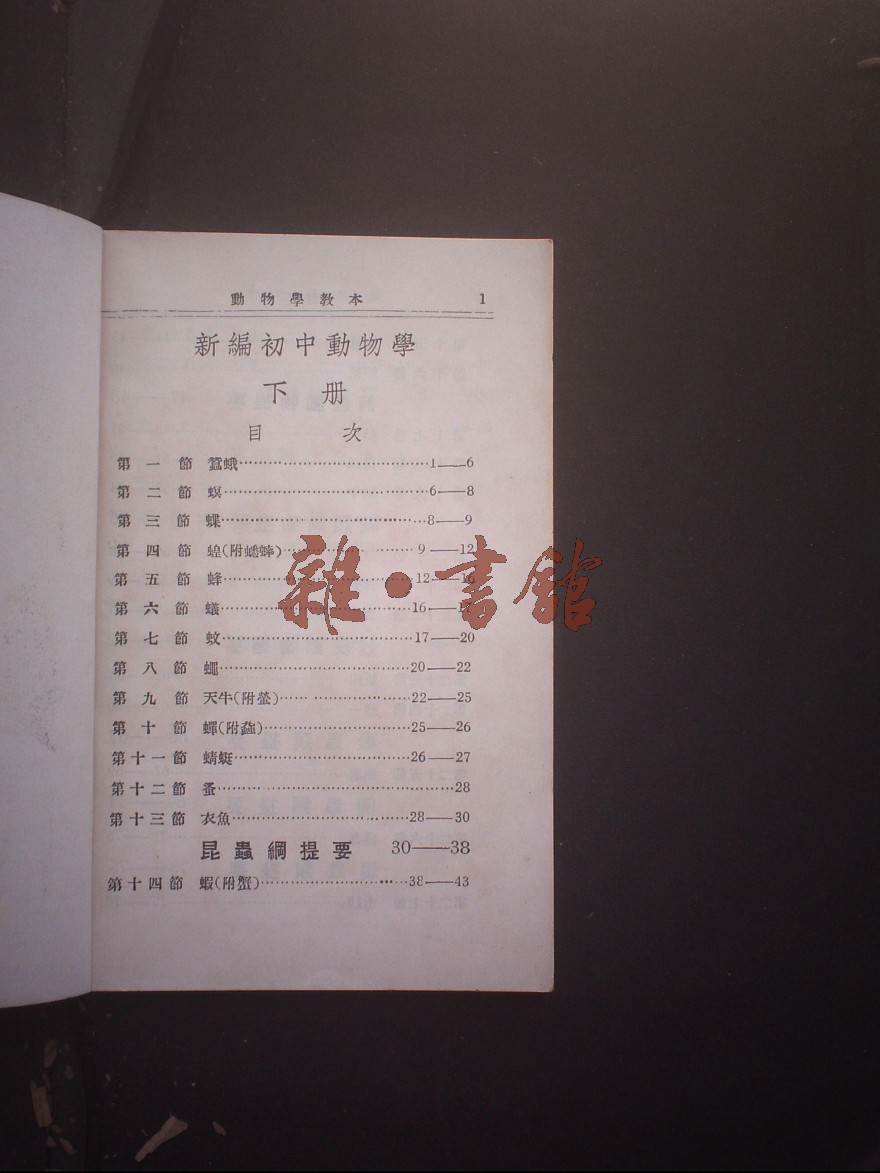 動物學教本 1
新編初中動物學
下册
目次
第一節 蠶蛾……………………………1——6
第二節 螟……………………………6——8
第三節 蝶……………………………8——9
第四節 蝗(附蟋蟀)……………………9——12
第五節 蜂……………………………12——16
第六節 蟻……………………………16——17
第七節 蚊……………………………17——20
第八節 蠅……………………………20——22
第九節 天牛(附螢)……………………22——25
第十節 蟬(附蝨)……………………25——26
第十一節 蜻蜓……………………………26——27
第十二節 蚤……………………………28
第十三節 衣魚……………………………28——30
昆蟲綱提要 30——38
第十四節 蝦(附蟹)……………………38——43
雜·書館